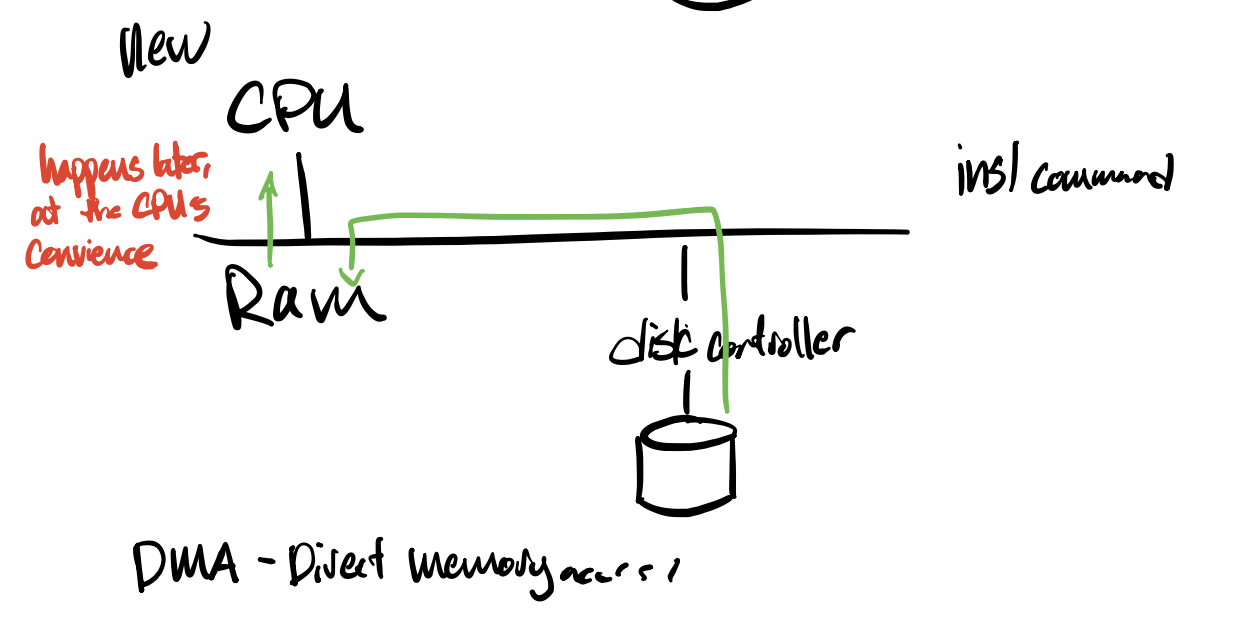 new
CPU
happens later,
at the CPUs
convience
insl command
Ram
disk controller
DMA - Direct memory access